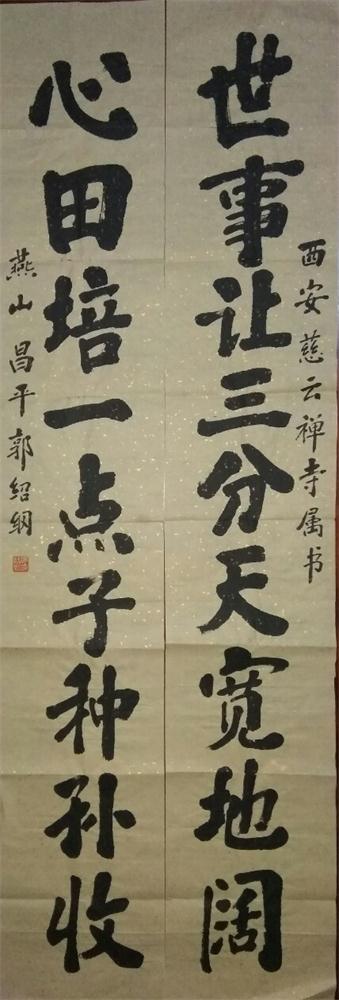 西安慈云禅寺属书
世事让三分天宽地阔
心田培一点子种孙收
燕山昌平郭绍纲